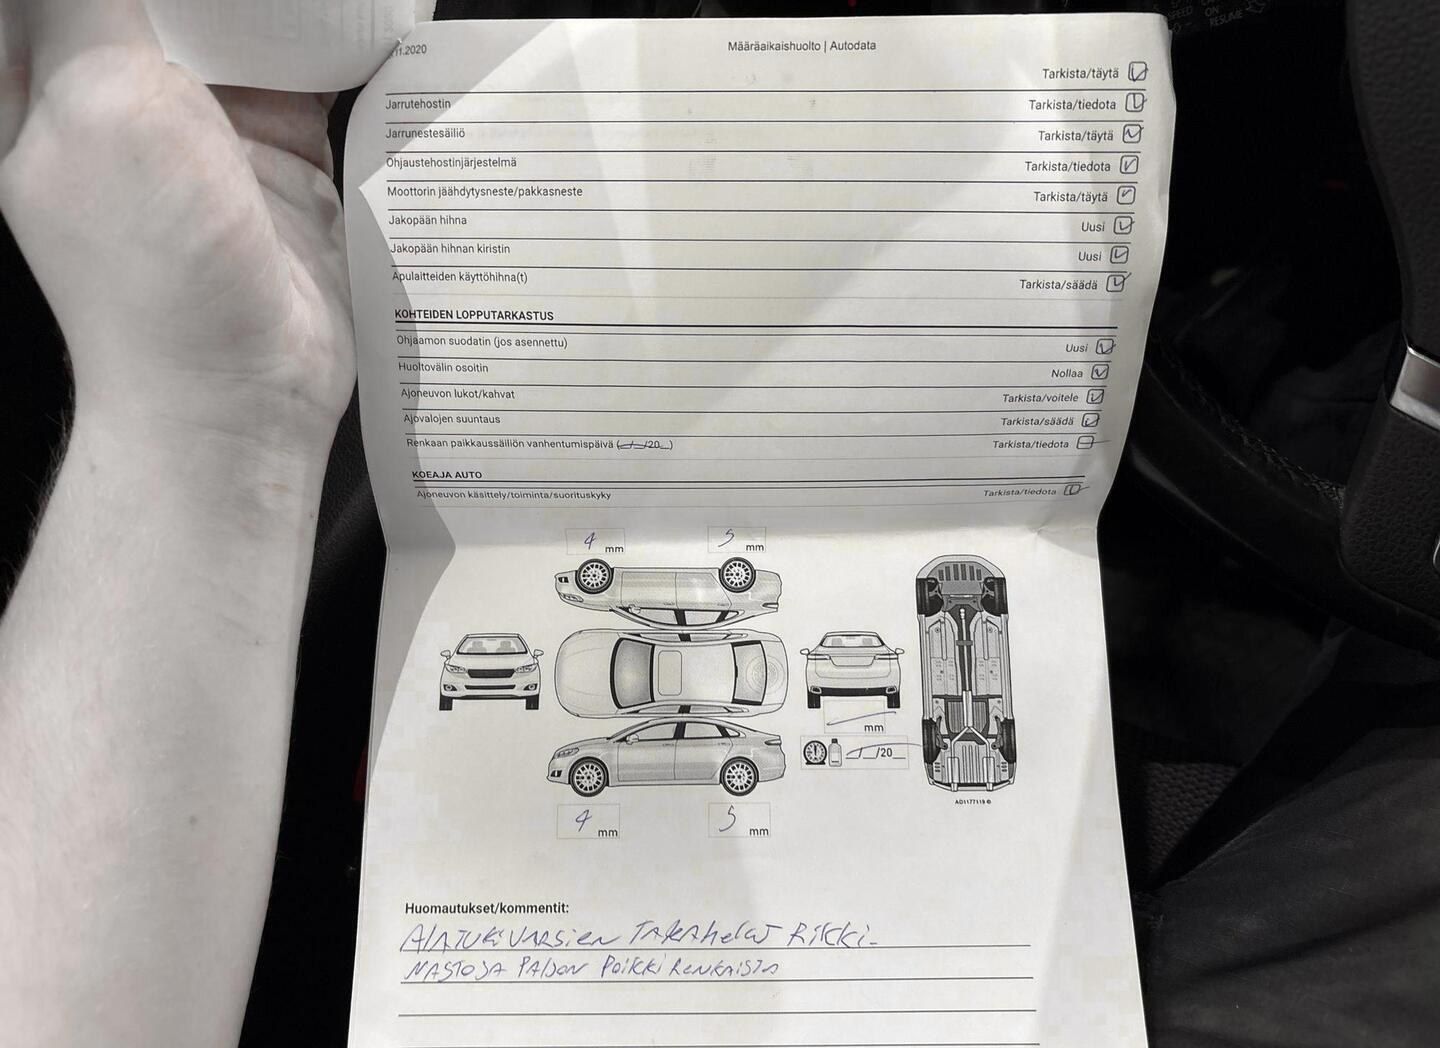 .11.2020 Määräaikaishuolto | Autodata
Tarkista/täytä
Jarrutehostin Tarkista/tiedota
Jarrunestesäiliö Tarkista/täytä
Ohjaustehostinjärjestelmä Tarkista/tiedota
Moottorin jäähdytysneste/pakkasneste Tarkista/täytä
Jakopään hihna Uusi
Jakopään hihnan kiristin Uusi
Apulaitteiden käyttöhihna(t) Tarkista/säädä
KOHTEIDEN LOPPUTARKASTUS
Ohjaamon suodatin (jos asennettu) Uusi
Huoltovälin osoitin Nollaa
Ajoneuvon lukot/kahvat Tarkista/voitele
Ajovalojen suuntaus Tarkista/säädä
Renkaan paikkaussäiliön vanhentumispäivä (__/__/20__) Tarkista/tiedota
KOEAJA AUTO
Ajoneuvon käsittely/toiminta/suorituskyky Tarkista/tiedota
4 mm 5 mm
mm
__/__/20__
AD1177119 ©
4 mm 5 mm
Huomautukset/kommentit:
AlATUKiVARSien TAKAhelAT Rikki-
NASTOJA PALJON Poikki RenKAiSTA
SPEED ON RESUME